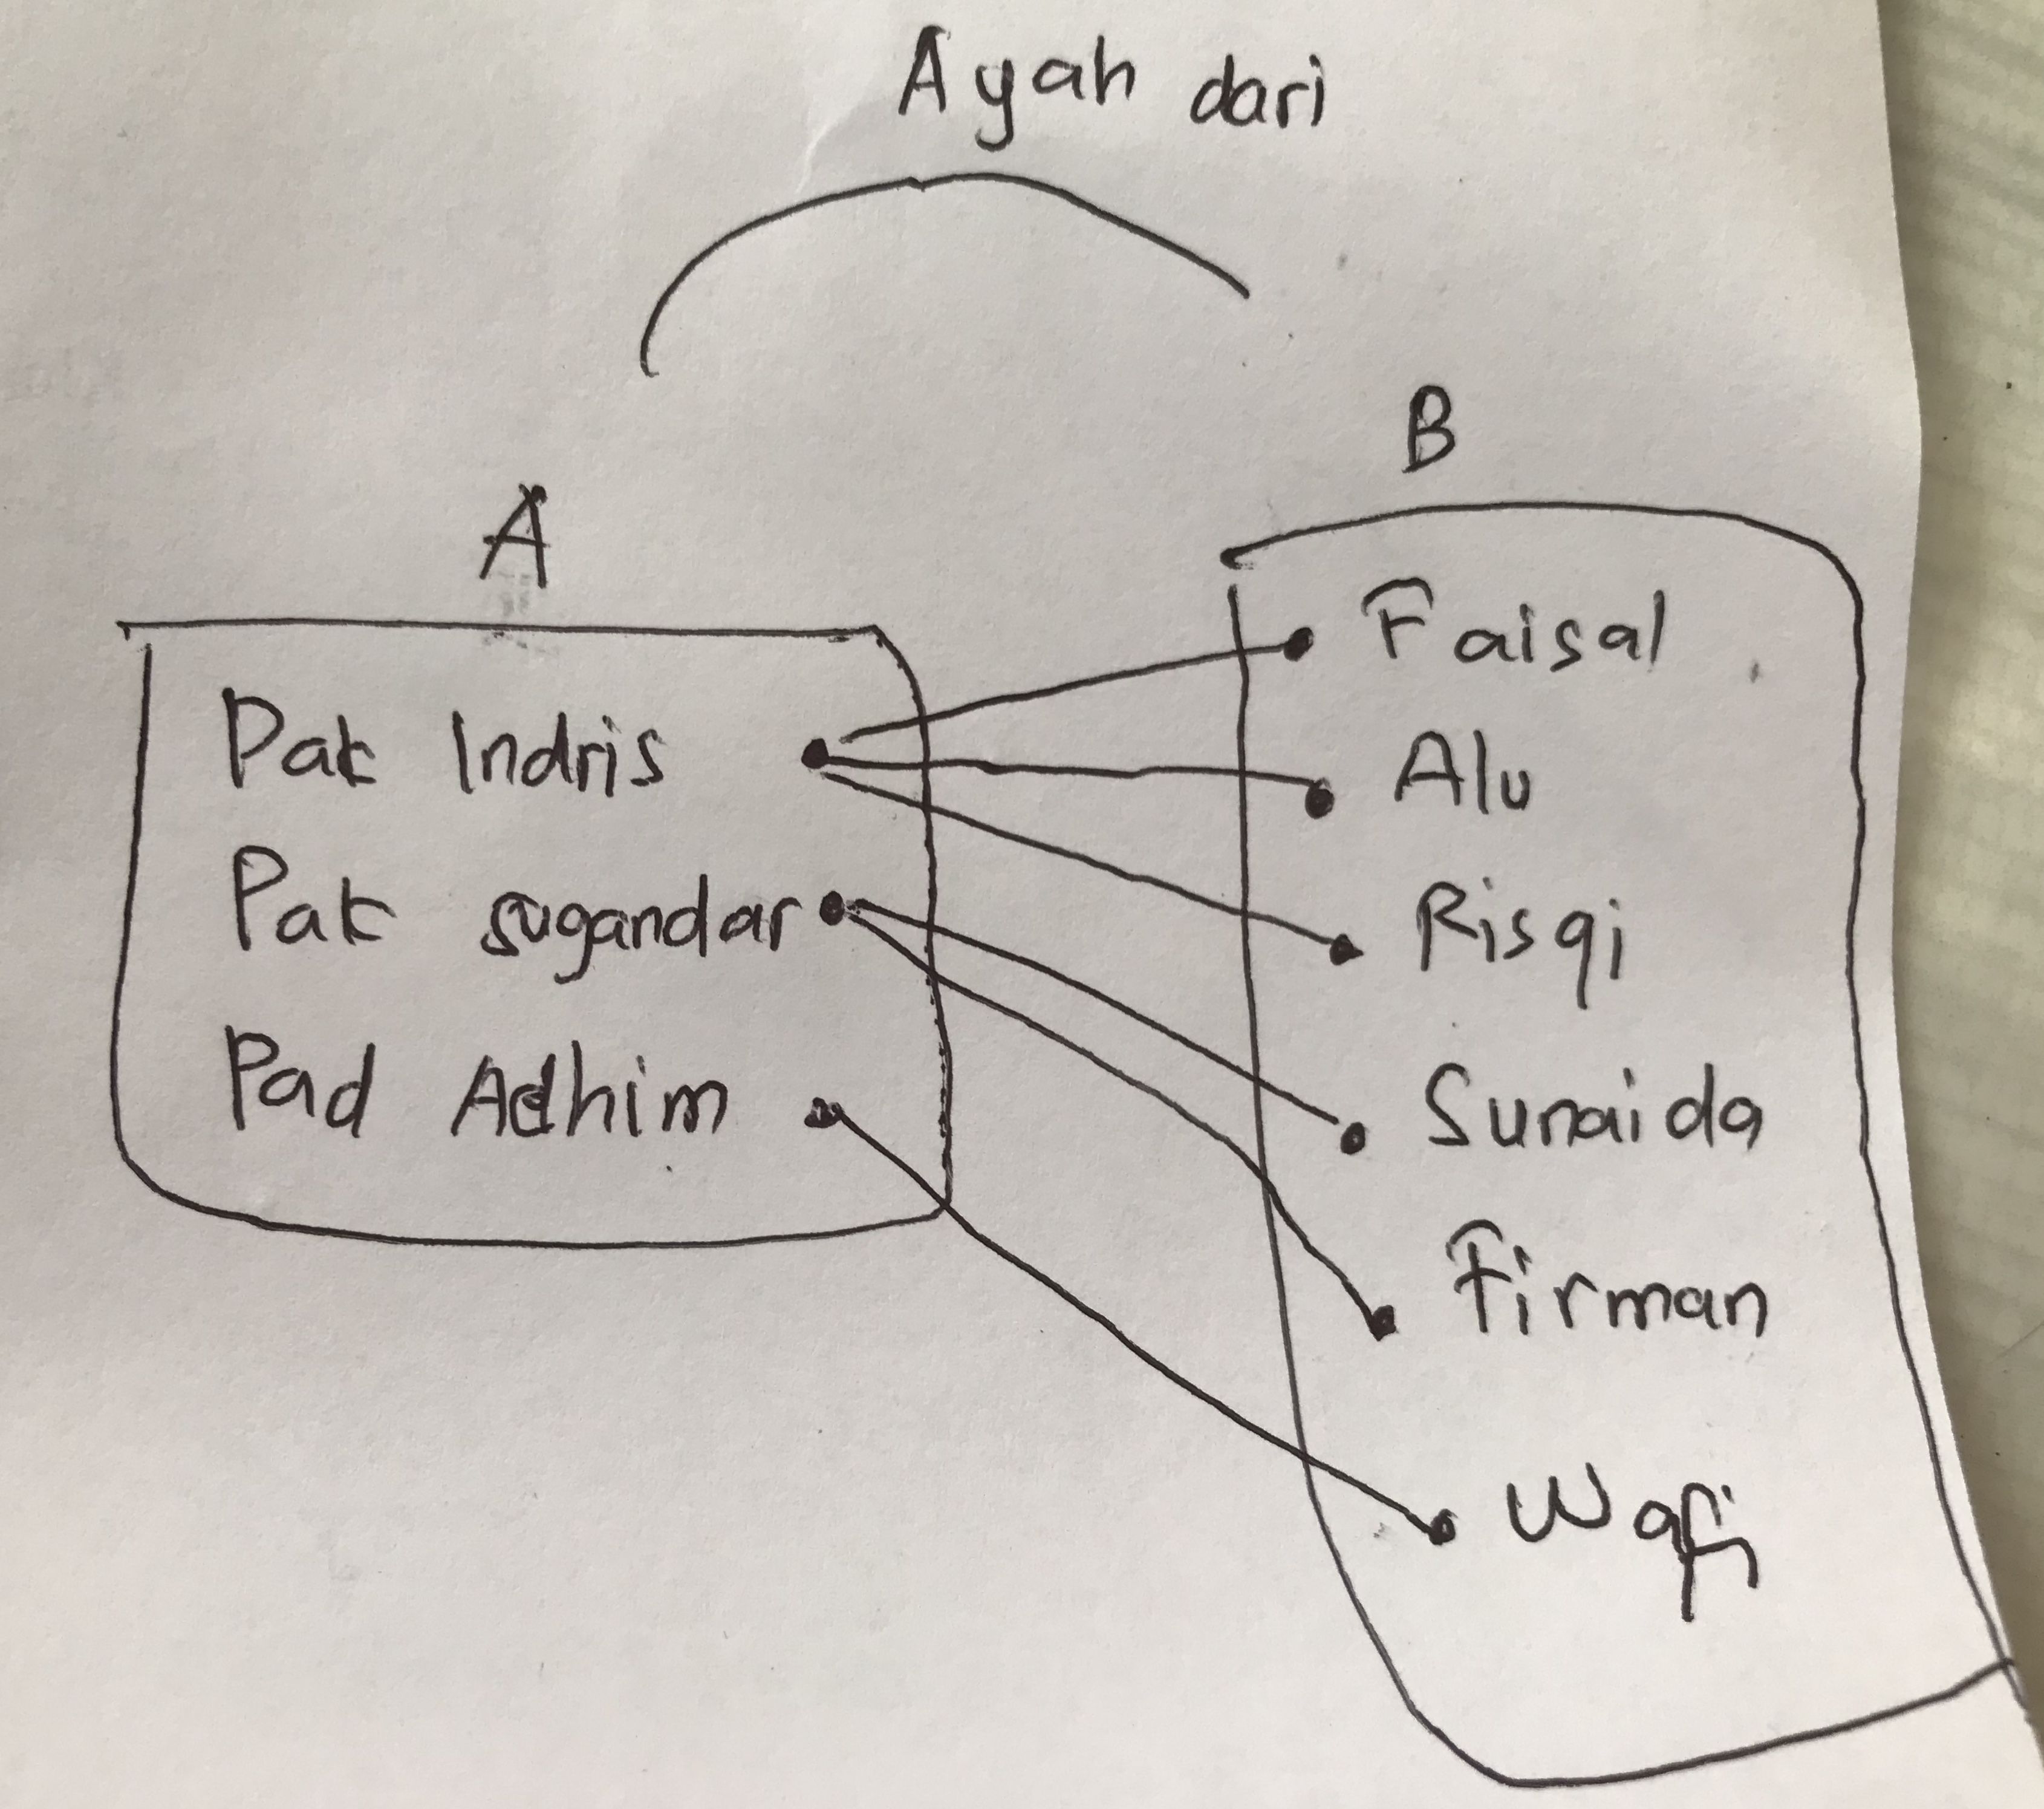 Ayah dari
A
Pak Indris
Pak sugandar
Pad Adhim
B
Faisal
Alu
Risqi
Sunaida
Firman
Wafi